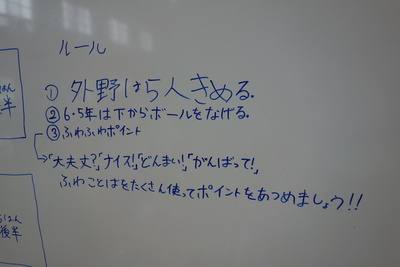 ルール
① 外野は5人きめる.
② 6・5年は下からボールをなげる.
③ ふわふわポイント
「大夫丈?」「ナイス!」「どんまい!」「がんばって!」
ふわことばをたくさん使ってポイントをあつめましょう!!
はん
後半
はん
後半